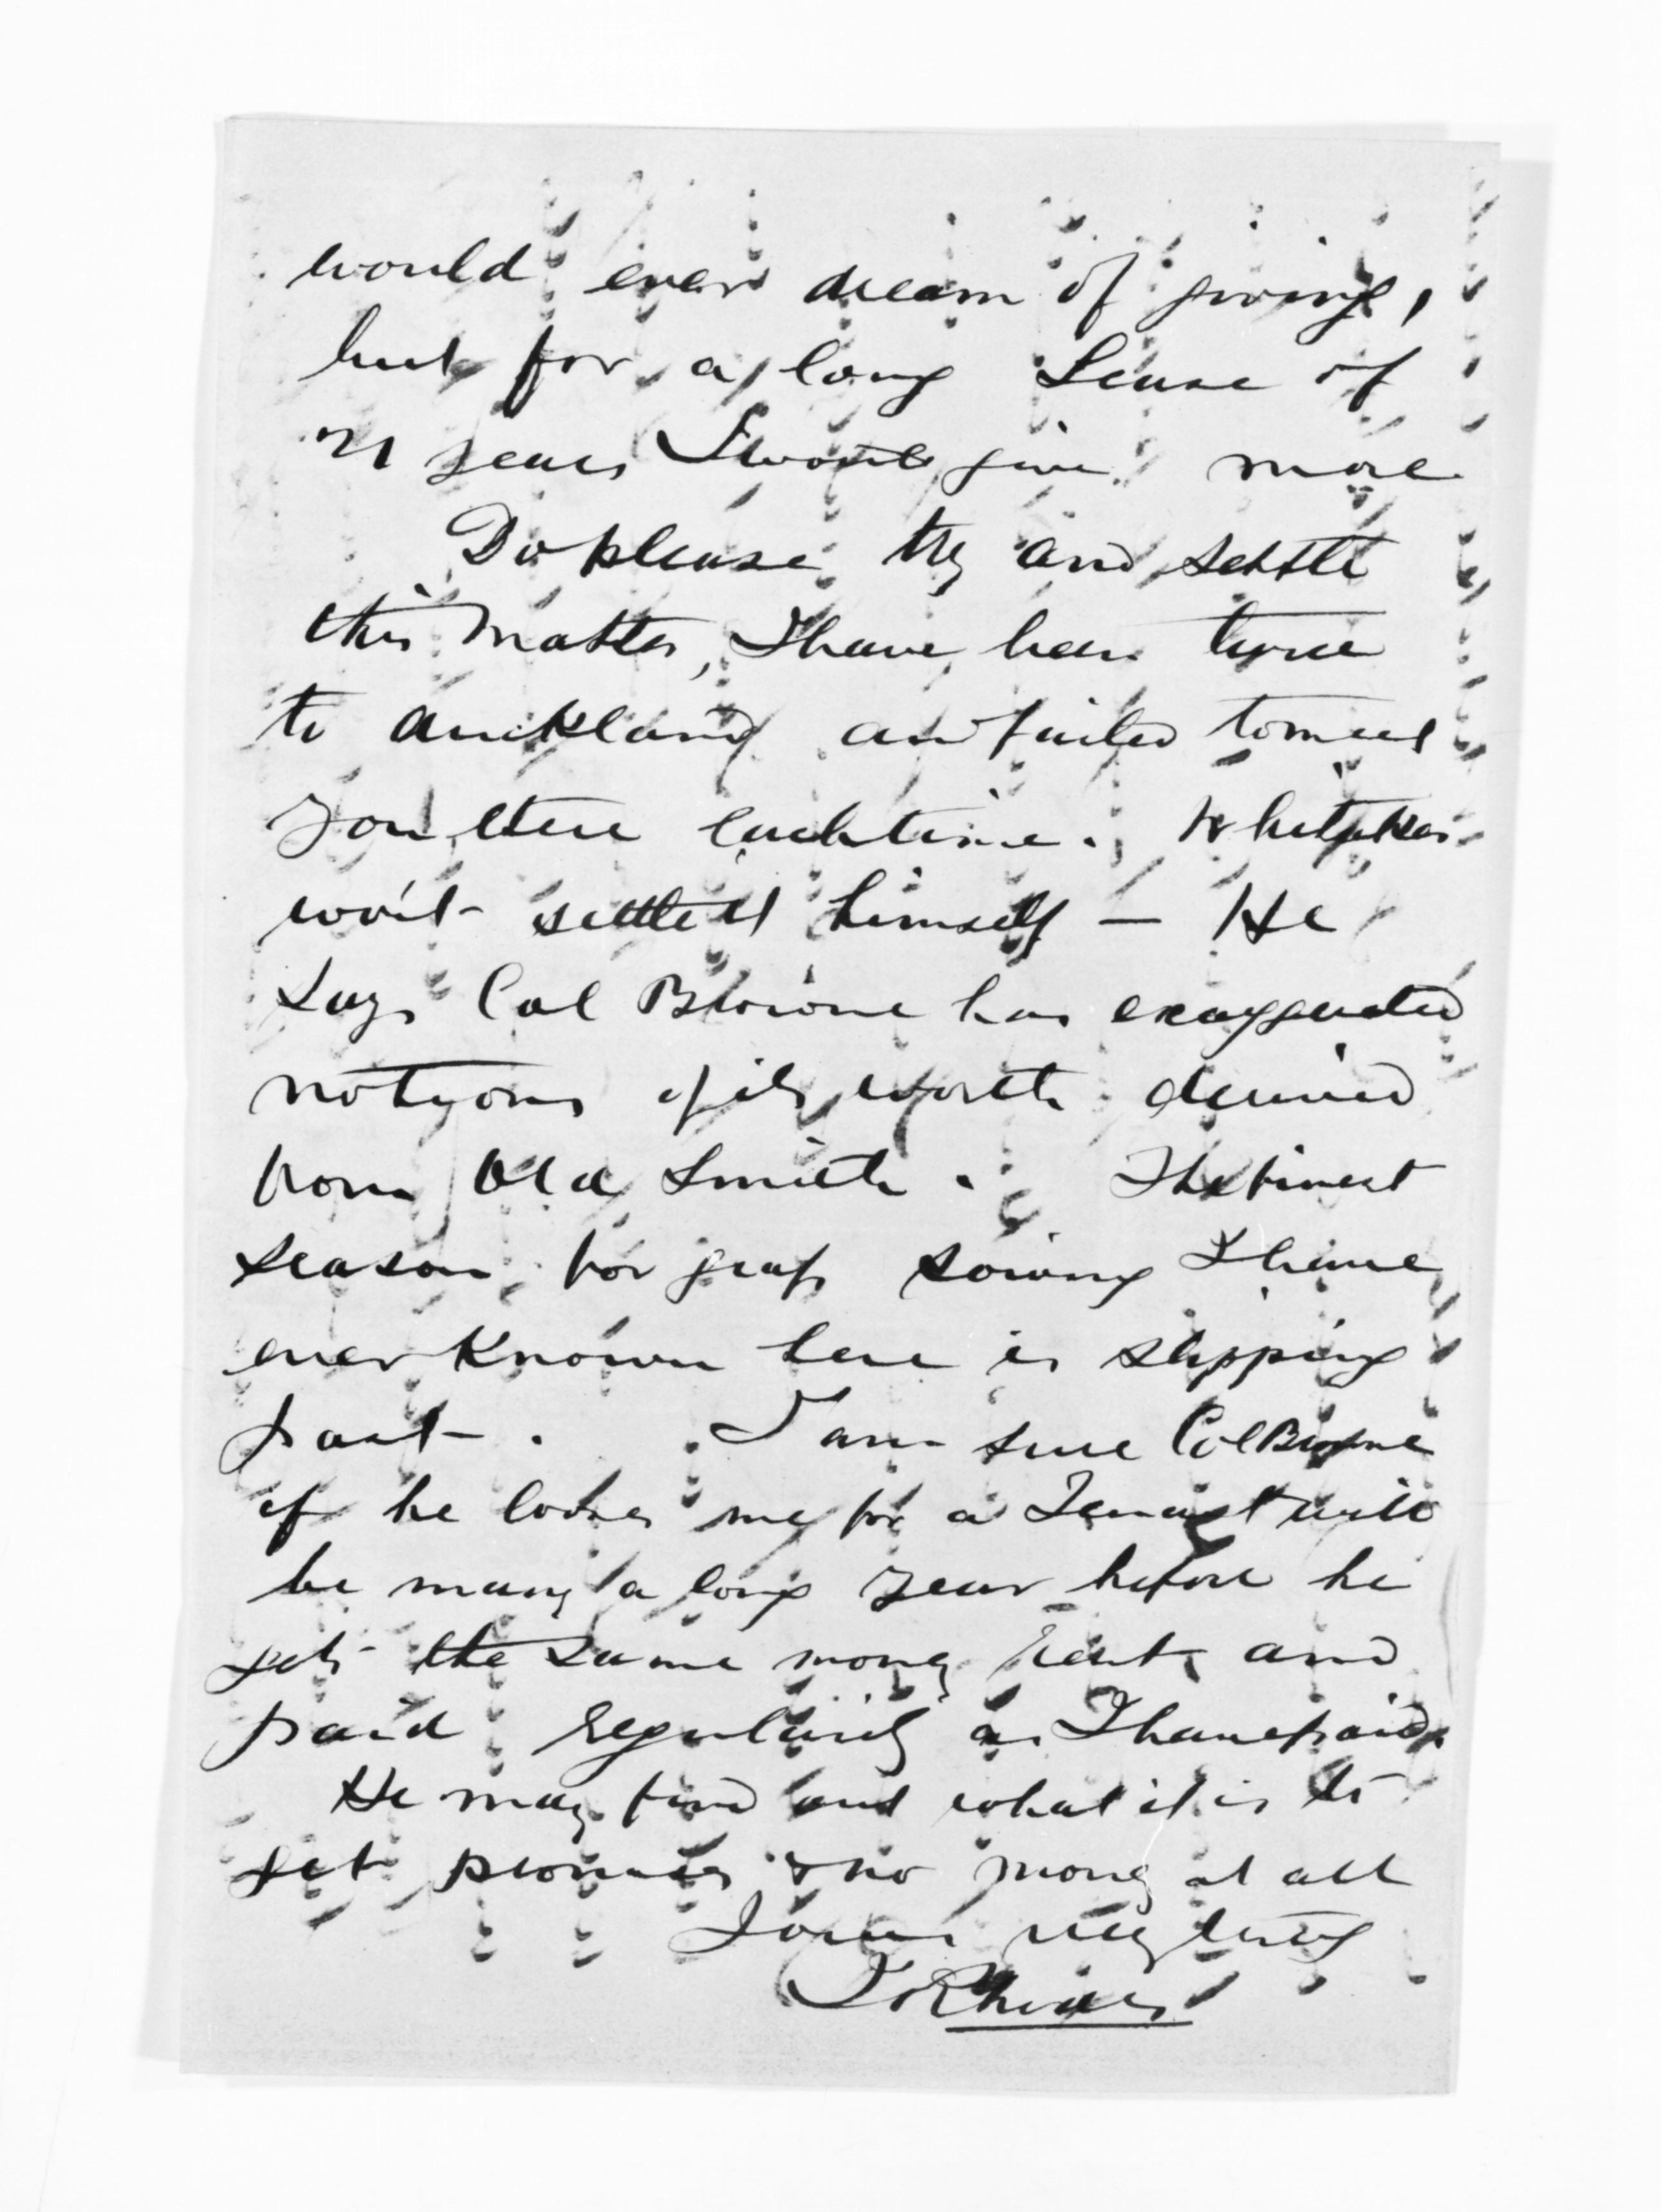 would ever dream of giving,
but for a long Lease of
21 years I would give more
Do please try and settle
this matter, I have been twice
to Auckland and failed to meet
you there each time. Whitaker
won't settle it himself — He
says Col Browne has exaggerated
notyons of its worth derived
from Old Smith. The finest
season for grass sowing I have
ever known here is slipping
past. I am sure Col Browne
if he looses me for a Tenant will
be many a long year before he
gets the same mony rent and
paid regularly as I have paid.
He may find out what it is to
get promises & no mony at all
Yours very truly
J Rhodes